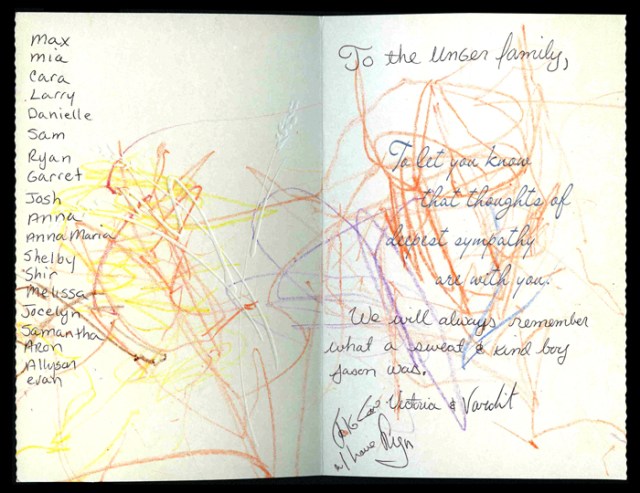 Max
Mia
Cara
Larry
Danielle
Sam
Ryan
Garret
Josh
Anna
Anna Maria
Shelby
Shir
Melissa
Jocelyn
Samantha
Aron
Allyson
evan
To the Unger family,
To let you know
that thoughts of
deepest sympathy
are with you.
We will always remember
what a sweat & kind boy
Jason was.
Victoria & Vardit
w/ love Ryn